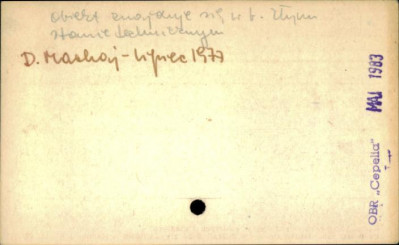 obiekt znajduje się w b. złym
stanie technicznym
D. Maskaj - lipiec 1977
MAJ 1983
OBR „Cepelia”